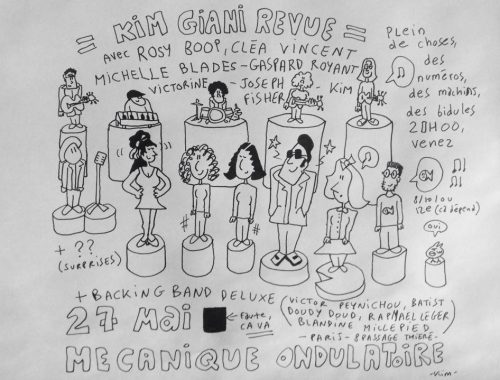 = KIM GIANI REVUE =
avec ROSY BOOP, CLEA VINCENT
MICHELLE BLADES - GASPARD ROYANT
VICTORINE - JOSEPH FISHER - KIM
PLEIN
de choses,
des
numéros,
des machins,
des bidules
20H00,
venez
8/10/ou
12€ (ça dépend)
OUI
+ ??
(SURPRISES)
+ BACKING BAND DELUXE
(VICTOR PEYNICHOU, BATIST
DOUDY DOUD, RAPHAEL LEGER
BLANDINE MILLEPIED)
27 MAI ← faute, ÇA VA
- PARIS - 8 PASSAGE THIERÉ -
MECANIQUE ONDULATOIRE
-Kim-